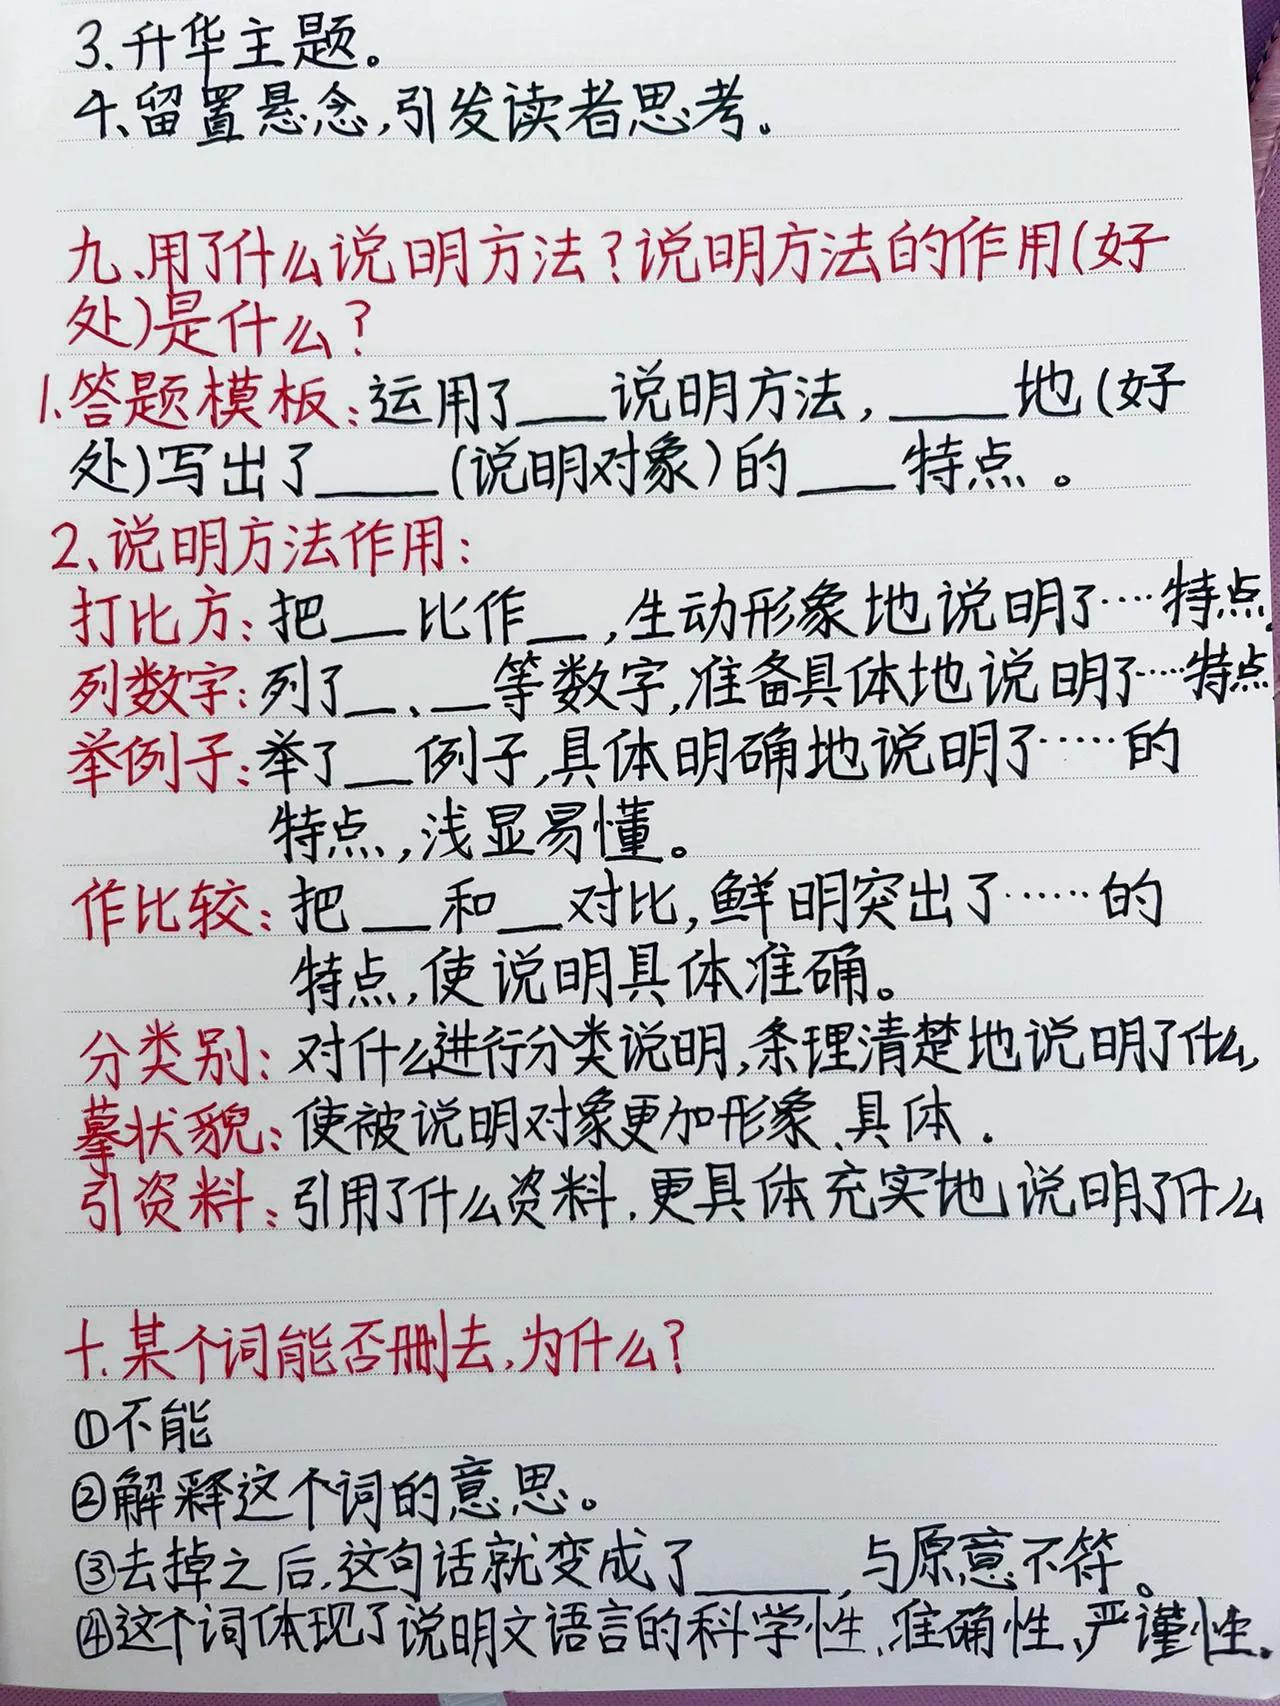 3.升华主题。
4、留置悬念,引发读者思考。
九、用了什么说明方法?说明方法的作用(好
处)是什么?
1.答题模板:运用了___说明方法,____地(好
处)写出了____(说明对象)的___特点。
2、说明方法作用:
打比方:把__比作__,生动形象地说明了····特点。
列数字:列了__、__等数字,准备具体地说明了····特点
举例子:举了__例子,具体明确地说明了·····的
特点,浅显易懂。
作比较:把__和__对比,鲜明突出了······的
特点,使说明具体准确。
分类别:对什么进行分类说明,条理清楚地说明了什么,
摹状貌:使被说明对象更加形象、具体.
引资料:引用了什么资料.更具体充实地说明了什么
十.某个词能否删去,为什么?
①不能
②解释这个词的意思。
③去掉之后,这句话就变成了_____,与原意不符。
④这个词体现了说明文语言的科学性、准确性、严谨性.